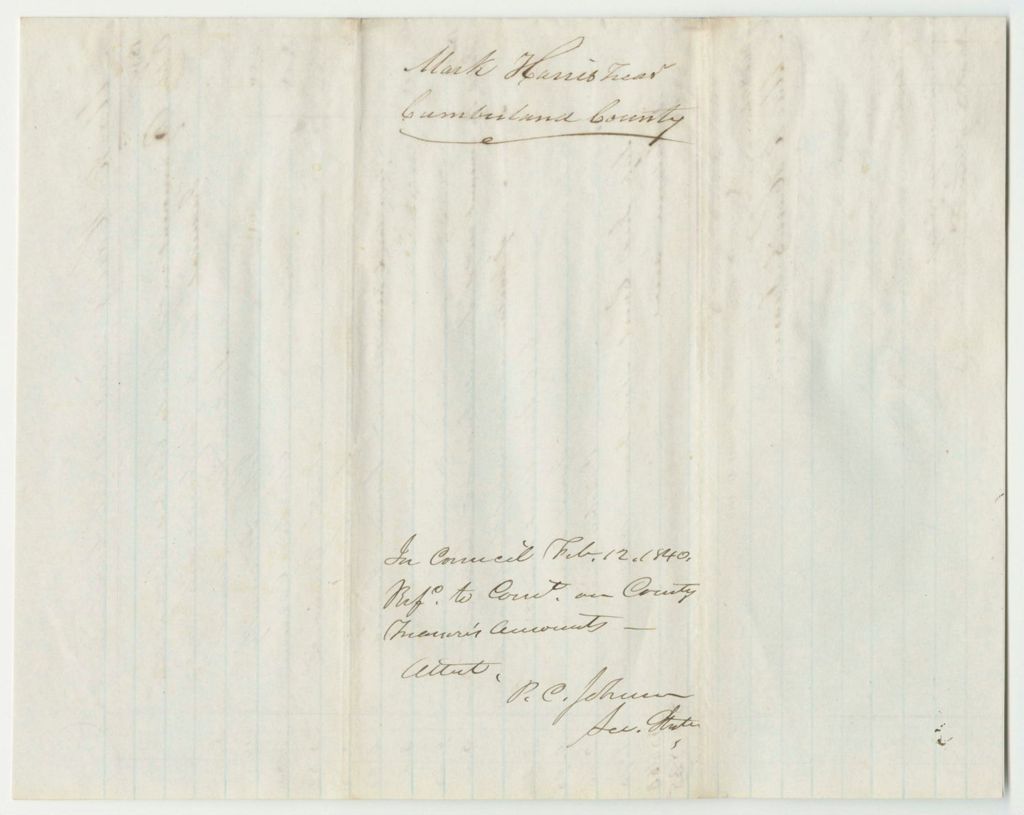 Mark Harris Treasr
Cumberland County
In Council Feb. 12. 1840.
Refd. to Comt. on County
Treasurers Accounts —
Attest,
P. C. Johnson
Sec. State